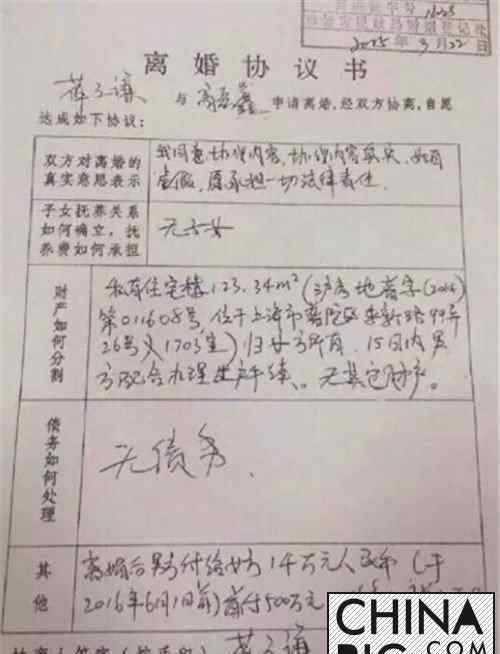 2015年9月22日
离婚协议书
蒋子谦 与 申请离婚,经双方协商,自愿
达成如下协议:
双方对离婚的
真实意思表示
我同意协议内容,协议内容真实,如有
虚假,愿承担一切法律责任。
子女抚养关系
如何确立,抚
养费如何承担
无子女
财产如何分割
私有住宅楼123.34m²(沪房地普字(2006)
第011608号,位于上海市普陀区 99弄
26号 1703室)归女方所有,15日内男
方配合办理过户手续。无其它财产。
债务如何处理
无债务.
其他
离婚后男方付给女方1千万元人民币(于
2016年6月1日前)首付500万元
蒋子谦
CHINA